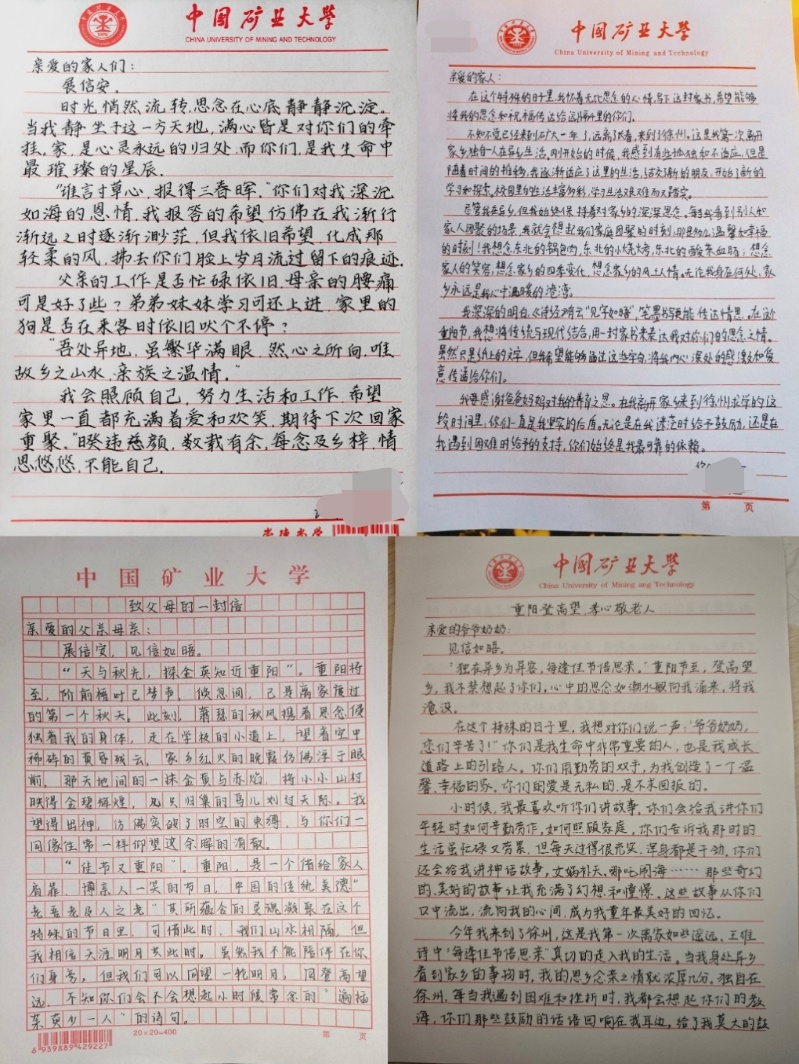 中国矿业大学
CHINA UNIVERSITY OF MINING AND TECHNOLOGY
亲爱的家人们：
展信安。
时光悄然流转，思念在心底静静沉淀。
当我静坐于这一方天地，满心皆是对你们的牵
挂。家，是心灵永远的归处，而你们，是我生命中
最璀璨的星辰。
“谁言寸草心，报得三春晖。”你们对我深沉
如海的恩情，我报答的希望仿佛在我渐行
渐远之时逐渐渺茫，但我依旧希望，化成那
轻柔的风，拂去你们脸上岁月流过留下的痕迹。
父亲的工作是否忙碌依旧，母亲的腰痛
可是好了些？弟弟妹妹学习可还上进，家里的
狗是否在来客时依旧吠个不停？
“吾处异地，虽繁华满眼，然心之所向，唯
故乡之山水，亲族之温情。”
我会照顾自己，努力生活和工作，希望
家里一直都充满着爱和欢笑，期待下次回家
重聚。“暌违慈颜，数载有余，每念及乡梓，情
思悠悠，不能自已。
中国矿业大学
China University of Mining and Technology
亲爱的家人：
在这个特殊的日子里，我怀着无比思念的心情，写下这封家书，希望能够
将我的思念和祝福传达给远隔千里的你们。
不知不觉已经来到矿大一年了，远离了家乡，来到徐州。这是我第一次离开
家乡独自一人在异乡生活。刚开始的时候，我感到有些孤独和不适应，但是
随着时间的推移，我逐渐适应了这里的生活，结交了新的朋友，开始了新的
学习和探索。校园里的生活丰富多彩，学习生活艰难而又踏实。
尽管我在异乡，但我始终保持着对家乡的深深思念。每当我看到别人和
家人团聚的场景，我就会想起我们家庭团聚的时刻，那是幼儿温馨和幸福
的时刻！我想念东北的锅包肉，东北的小烧大烤，东北的酸菜血肠；想念
家人的笑容，想念家乡的四季变化，想念家乡的风土人情。无论我身在何处，家
乡永远是我心中温暖的港湾。
我深深的明白，
“见字如晤”，笔墨书更能传达情思。在这
重阳节，我想将传统与现代结合，用一封家书来表达我对你们的思念之情。
虽然只是纸上的文字，但我希望能够通过这些字句，将我内心深处的感激和爱
意传递给你们。
我要感谢爸爸妈妈对我的养育之恩。在我离开家乡来到徐州求学的这
段时间里，你们一直是我坚实的后盾。无论是在我迷茫时给予鼓励，还是在
我遇到困难时给予的支持，你们始终是我最可靠的依赖。
第 页
中国矿业大学
致父母的一封信
亲爱的父亲母亲：
展信安，见信如晤。
“天与秋光，探金英知近重阳”。重阳将
至，阶前梧叶已梦声，倏忽间，已是离家度过
的第一个秋天。此刻，萧瑟的秋风携着思念侵
蚀着我的身体，走在学校的小道上，望着空中
稀碎的黄昏残云，家乡红火的晚霞仿佛浮于眼
前。那天地间的一抹金黄与赤焰，将小小山村
映得金碧辉煌，几只归巢的鸟儿划过天际。我
望得出神，仿佛突破了时空的束缚，与你们一
同像往常一样仰望这余晖的消散。
“佳节又重阳”。重阳，是一个借给家人
肩靠，博亲人一笑的节日，中国的传统美德“
老吾老及人之老”其所蕴含的灵魂凝聚在这个
特殊的节日里，可惜此时，我们山水相隔，但
我相信天涯明月共此时。虽然我不能陪伴在你
们身旁，但我们可以同望一轮明月，同登高望
远，不知你们会不会想起小时候常念的“遍插
茱萸少一人”的诗句。
6 939889 429227
20×20=400
第 页
中国矿业大学
China University of Mining and Technology
重阳登高望，孝心敬老人
亲爱的爷爷奶奶：
见信如晤。
“独在异乡为异客，每逢佳节倍思亲。”重阳节至，登高望
乡，我不禁想起了你们。心中的思念如潮水般向我涌来，将我
淹没。
在这个特殊的日子里，我想对你们说一声：“爷爷奶奶，
您们辛苦了！”你们是我生命中非常重要的人，也是我成长
道路上的引路人。你们用勤劳的双手，为我创造了一个温
馨、幸福的家，你们的爱是无私的，是不求回报的。
小时候，我最喜欢听你们讲故事，你们会给我讲你们
年轻时如何辛勤劳作，如何照顾家庭，你们告诉我那时的
生活虽忙碌又劳累，但每天过得很充实，浑身都是干劲。你们
还会给我讲神话故事，女娲补天，哪吒闹海……那些奇幻
的、美好的故事让我充满了幻想和憧憬，这些故事从你们
口中流出，流向我的心间，成为我童年最美好的回忆。
今年我来到了徐州，这是我第一次离家如此遥远，王维
诗中“每逢佳节倍思亲”真切的走入我的生活。当我身处异乡
看到家乡的事物时，我的思乡念亲之情就浓厚几分。独自在
徐州，每当我遇到困难和挫折时，我都会想起你们的教
诲，你们那些鼓励的话语回响在我耳边，给了我莫大的鼓